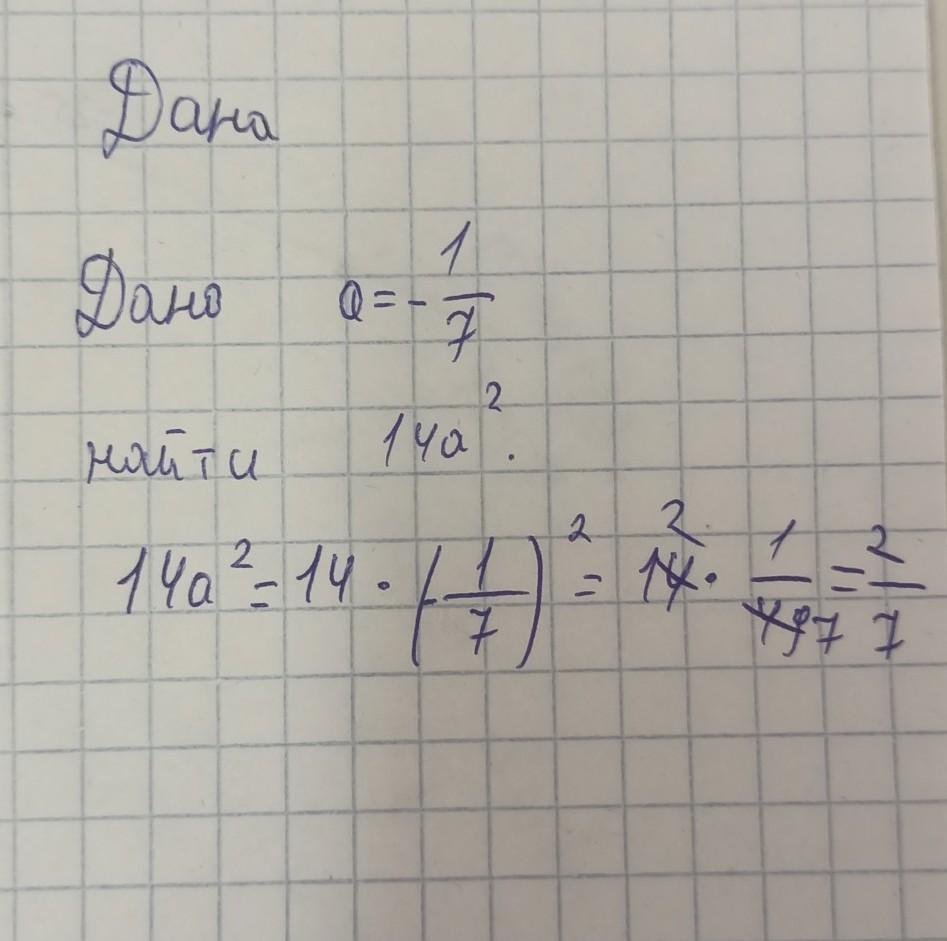 Дана
Дано a = - 1/7
найти 14a².
14a² = 14 · (-1/7)² = 14 2 · 1/49 7 = 2/7